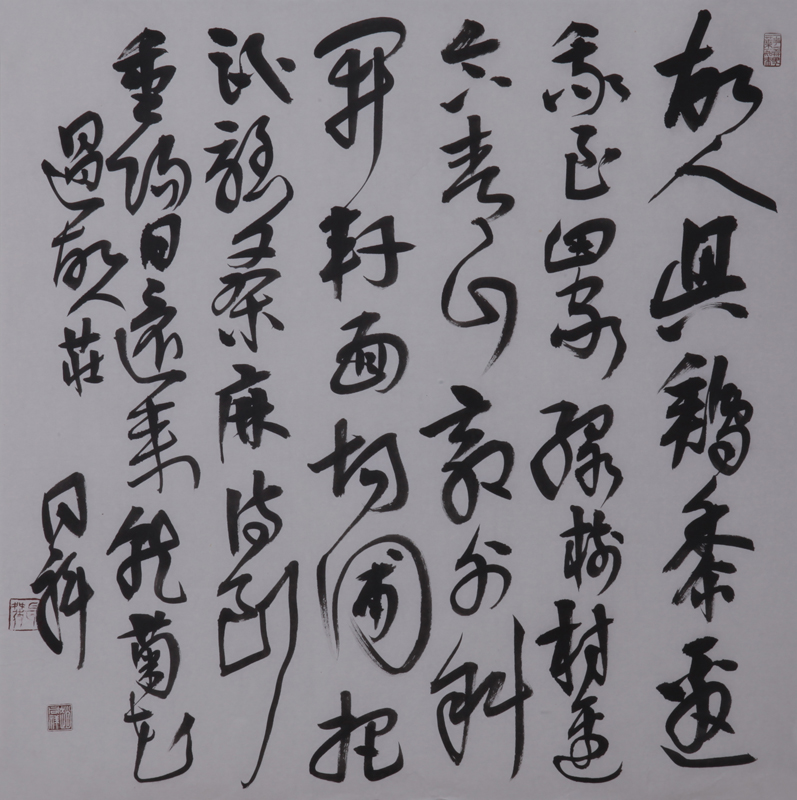 故人具鷄黍邀
我至田家綠樹村邊
合青山郭外斜
開軒面場圃把
酒話桑麻待到
重陽日還來就菊花
過故人莊